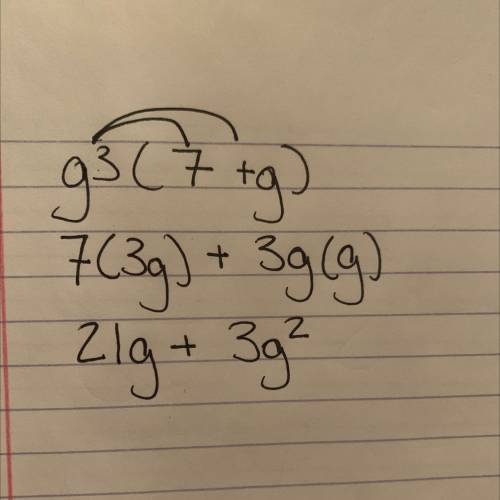 g³(7 + g)
7(3g) + 3g(g)
21g + 3g²